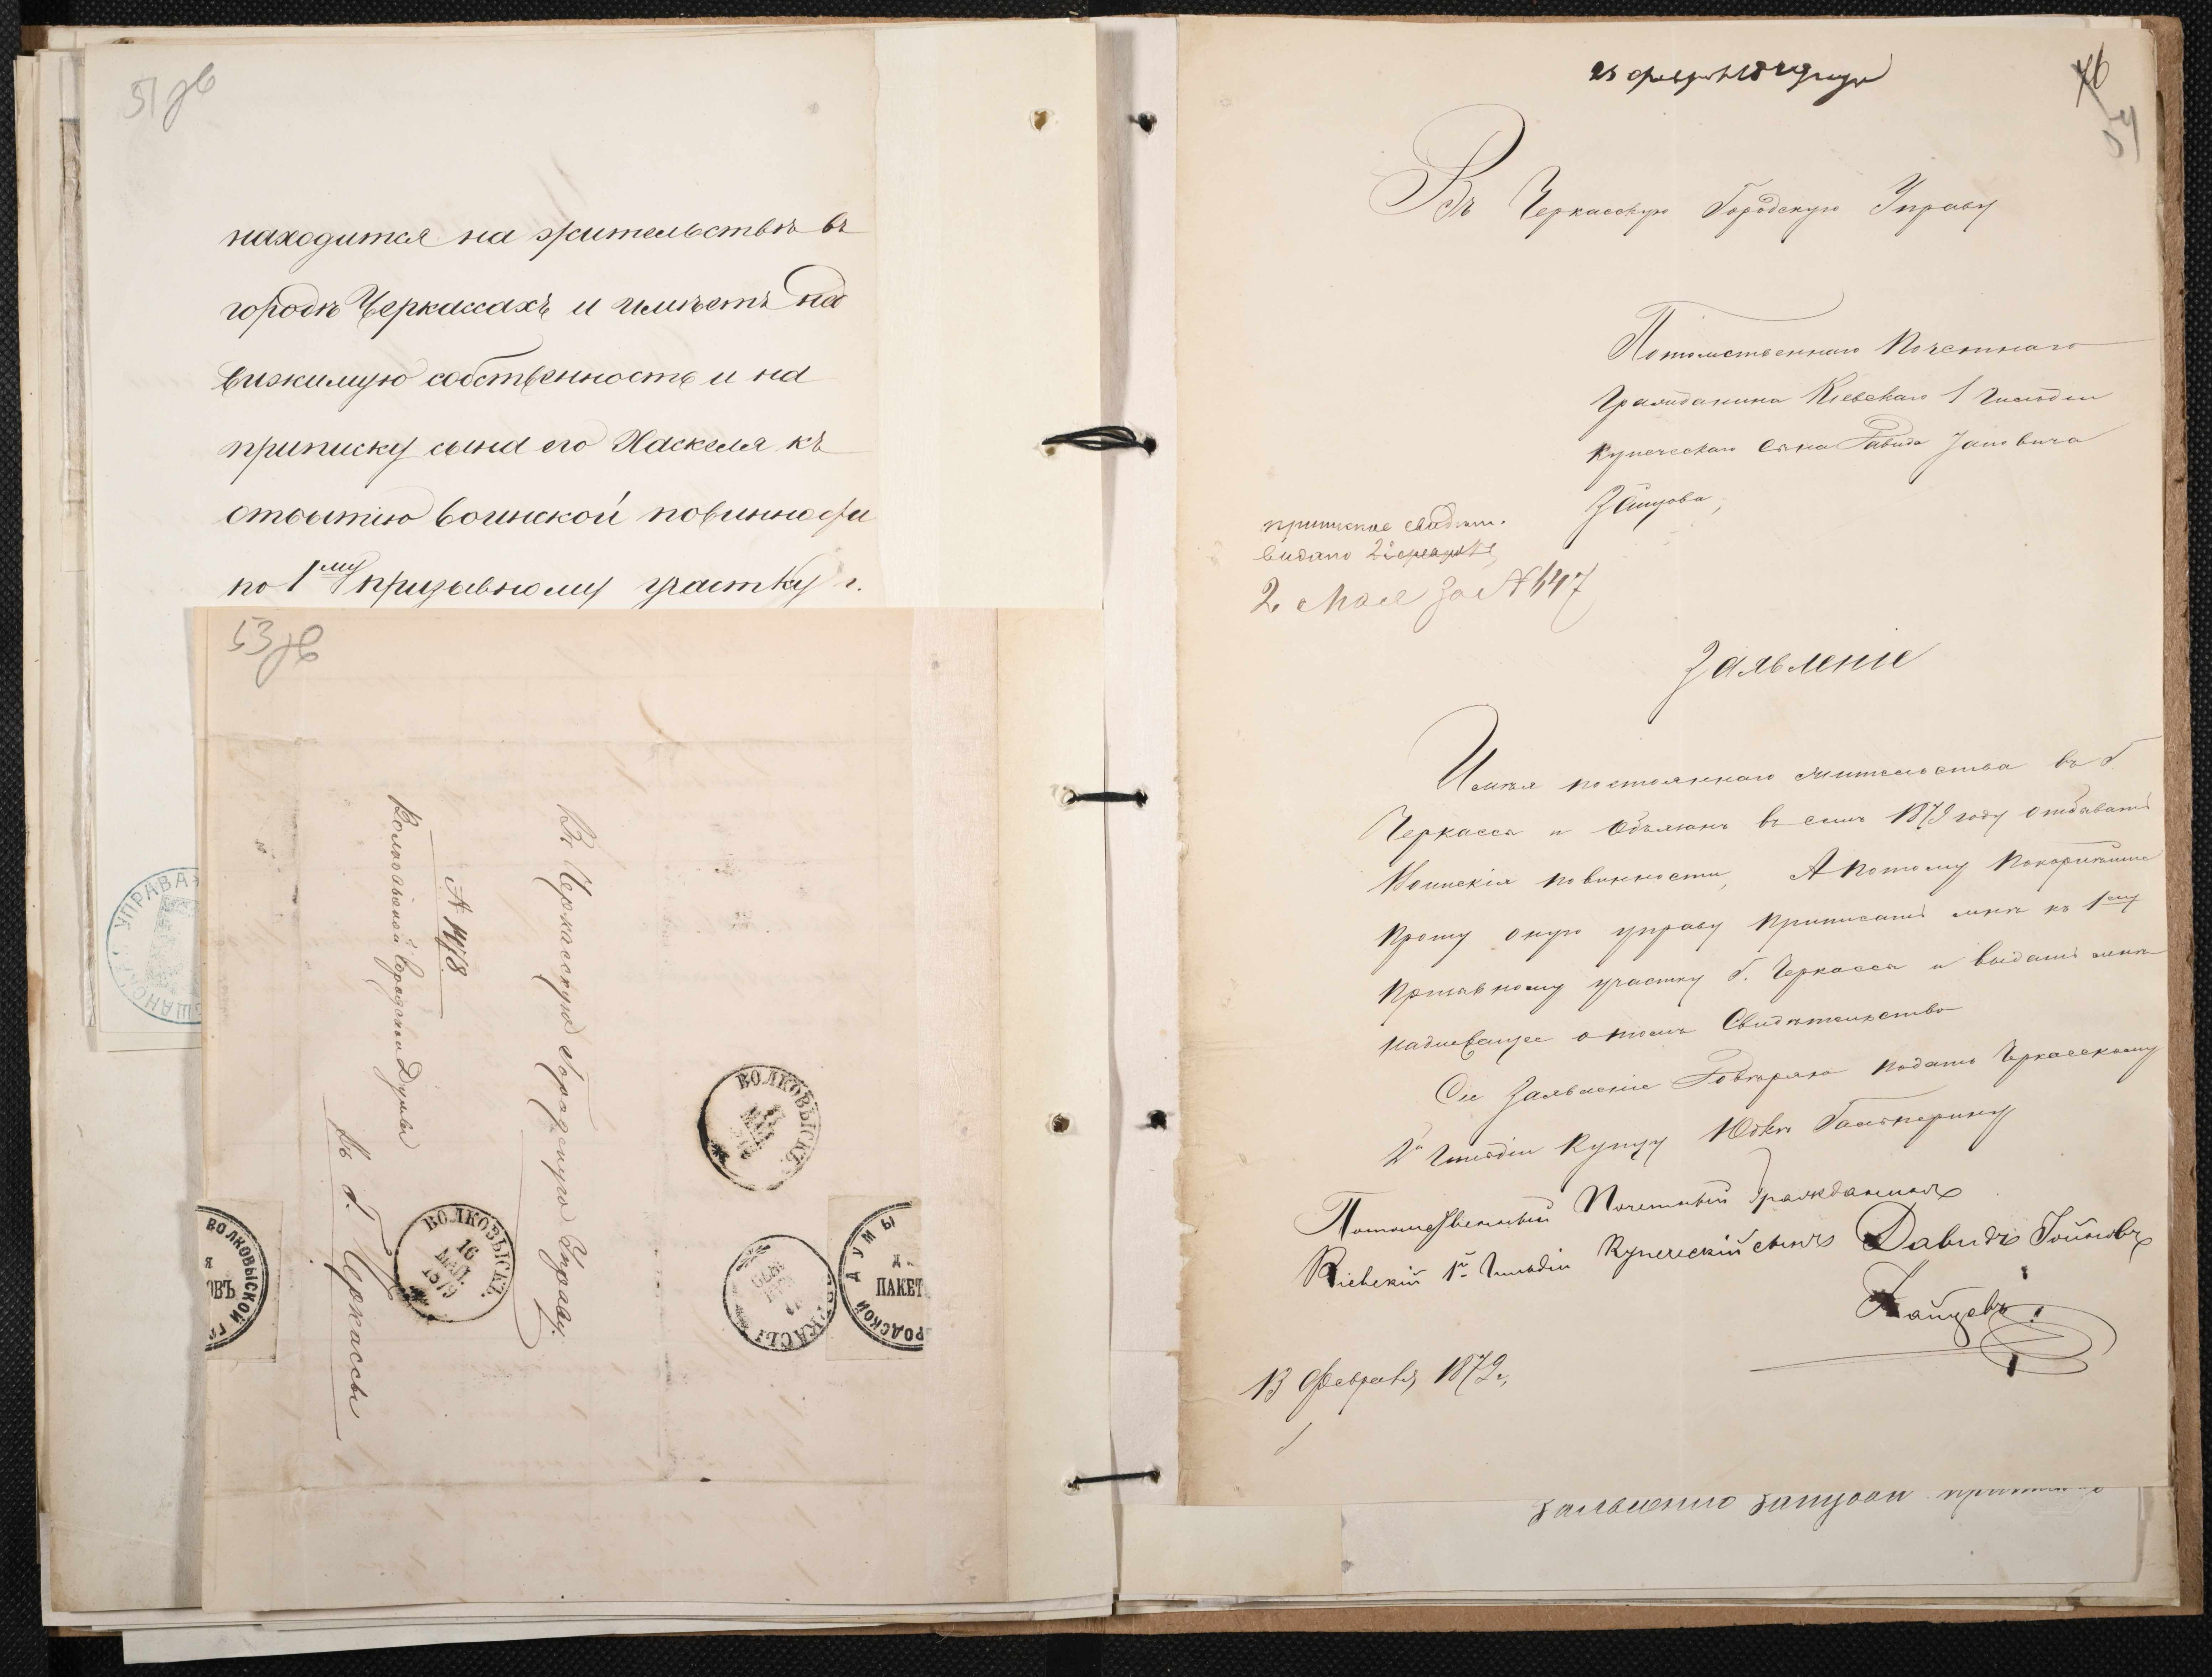 51 об
находится на жительствѣ въ
городѣ Черкассахъ и имѣетъ не
движимую собственность и на
приписку сына его Хаскеля къ
отбытію воинской повинности
по 1му призывному участку г.
53 об
Въ Черкасскую Городскую Управу.
№ 1478
Волковыской Городской Думы
Въ г. Черкассы
ВОЛКОВЫСКЪ
ВОЛКОВЫСКЪ
16
МАЯ
1879
ЧЕРКАСЫ
1879
ВОЛКОВЫСКОЙ
ГОРОДСКОЙ ДУМЫ
ПАКЕТ
УПРАВА
76
54
Въ Черкасскую Городскую Управу
Потомственнаго Почетнаго
Гражданина Кіевскаго 1 Гильдіи
Купеческаго Сына Давида
Зайцова,
приписное свидѣт.
видано
2 Мая за № 647
Заявленіе
Имѣя постояннаго жительства въ г
Черкассы и Обязанъ въ семъ 1879 году отбывать
Воинскія повинности, А Потому Покорнѣйше
Прошу оную управу Приписать мнѣ къ 1му
Призывному участку г. Черкассы и выдать мнѣ
надлежащее о томъ Свидѣтельство
Сие Заявленіе Довѣряю подать Черкасскому
2й Гильдіи Купцу
Потомственный Почетный Гражданинъ
Кіевскій 1й Гильдіи Купеческій сынъ Давидъ
Зайцевъ
13 Февраля 1879 г.